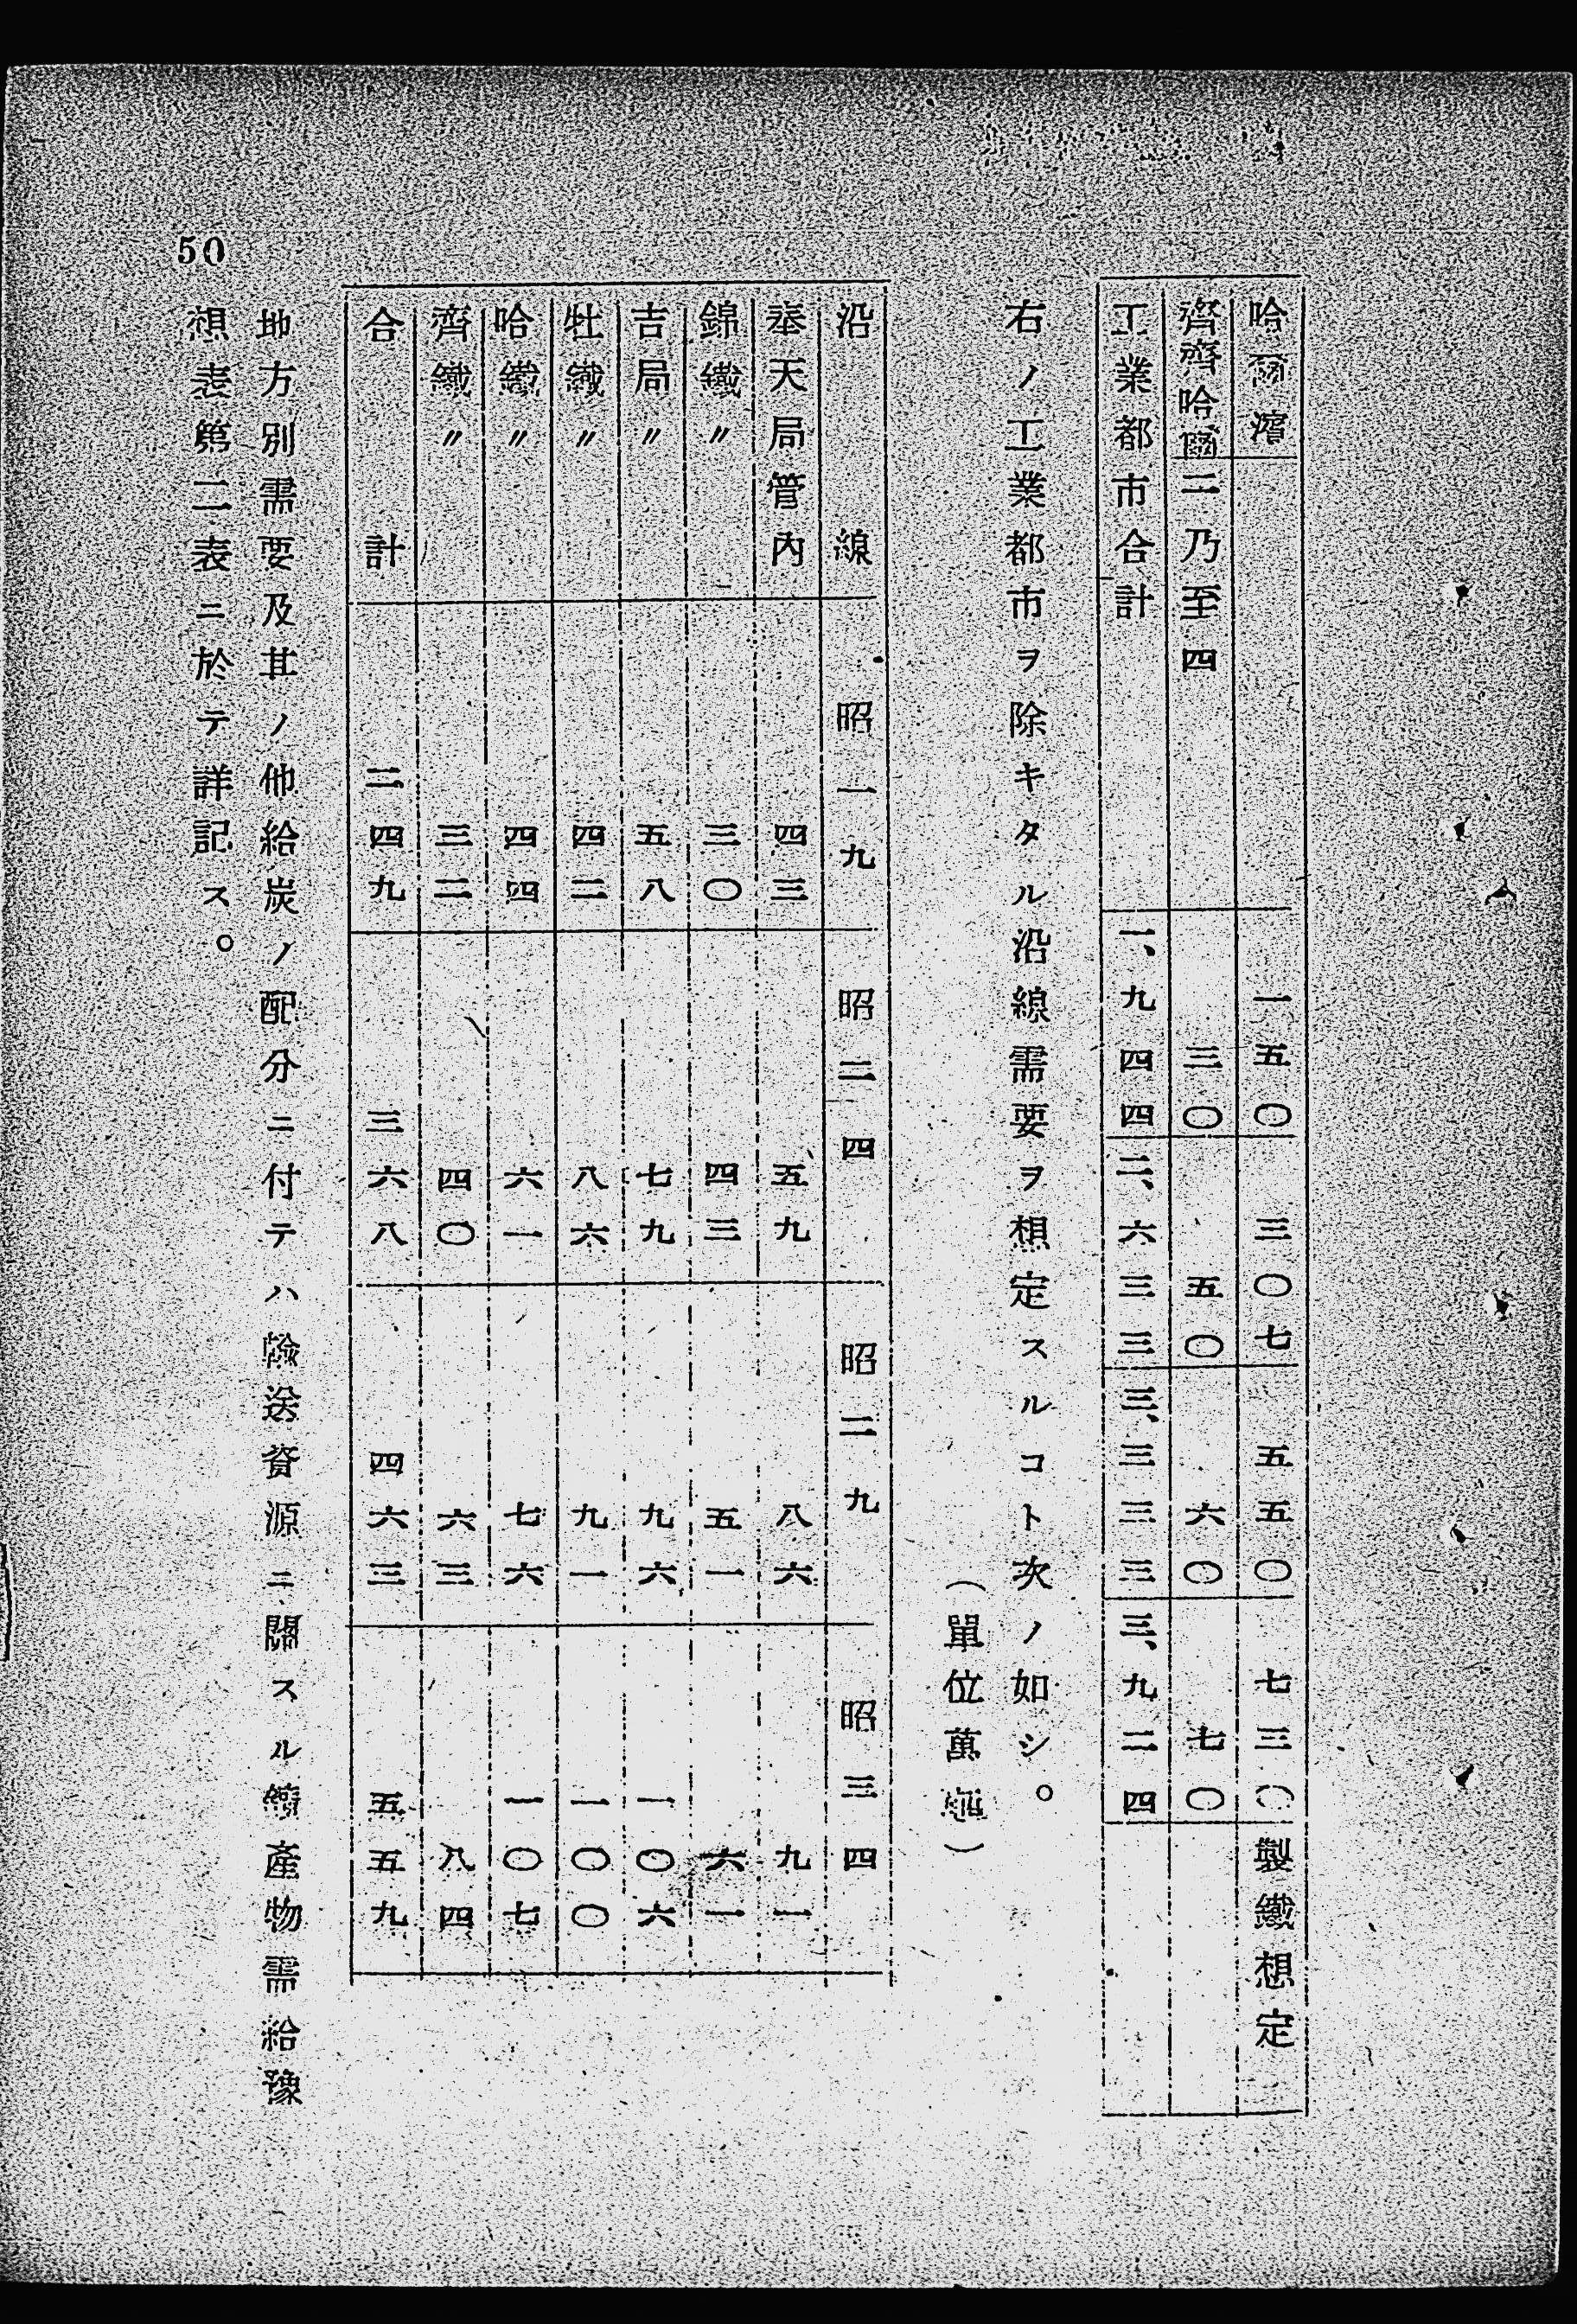 哈爾濱 一五〇 三〇七 五五〇 七三〇 製鐵想定
齊齊哈爾 二乃至四 三〇 五〇 六〇 七〇
工業都市合計 一、九四四 二、六三三 三、三三三 三、九二四
右ノ工業都市ヲ除キタル沿線需要ヲ想定スルコト次ノ如シ。
(單位萬瓲)
沿線 昭一九 昭二四 昭二九 昭三四
奉天局管內 四三 五九 八六 九一
錦鐵〃 三〇 四三 五一 六一
吉局〃 五八 七九 九六 一〇六
牡鐵〃 四二 八六 九一 一〇〇
哈鐵〃 四四 六一 七六 一〇七
齊鐵〃 三二 四〇 六三 八四
合計 二四九 三六八 四六三 五五九
地方別需要及其ノ他給炭ノ配分ニ付テハ輸送資源ニ關スル鑛產物需給豫
想表第二表ニ於テ詳記ス。
50